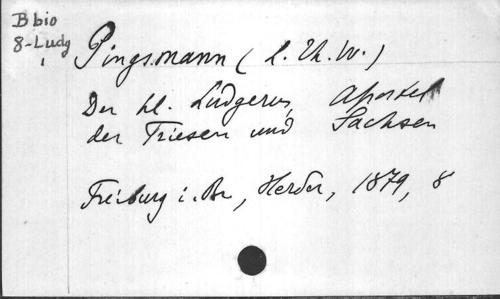 B bio
8-Ludg
1
Pingsmann (L. Th. W.)
Der hl. Ludgerus, Apostel
der Friesen und Sachsen
Freiburg i. Br, Herder, 1879, 8